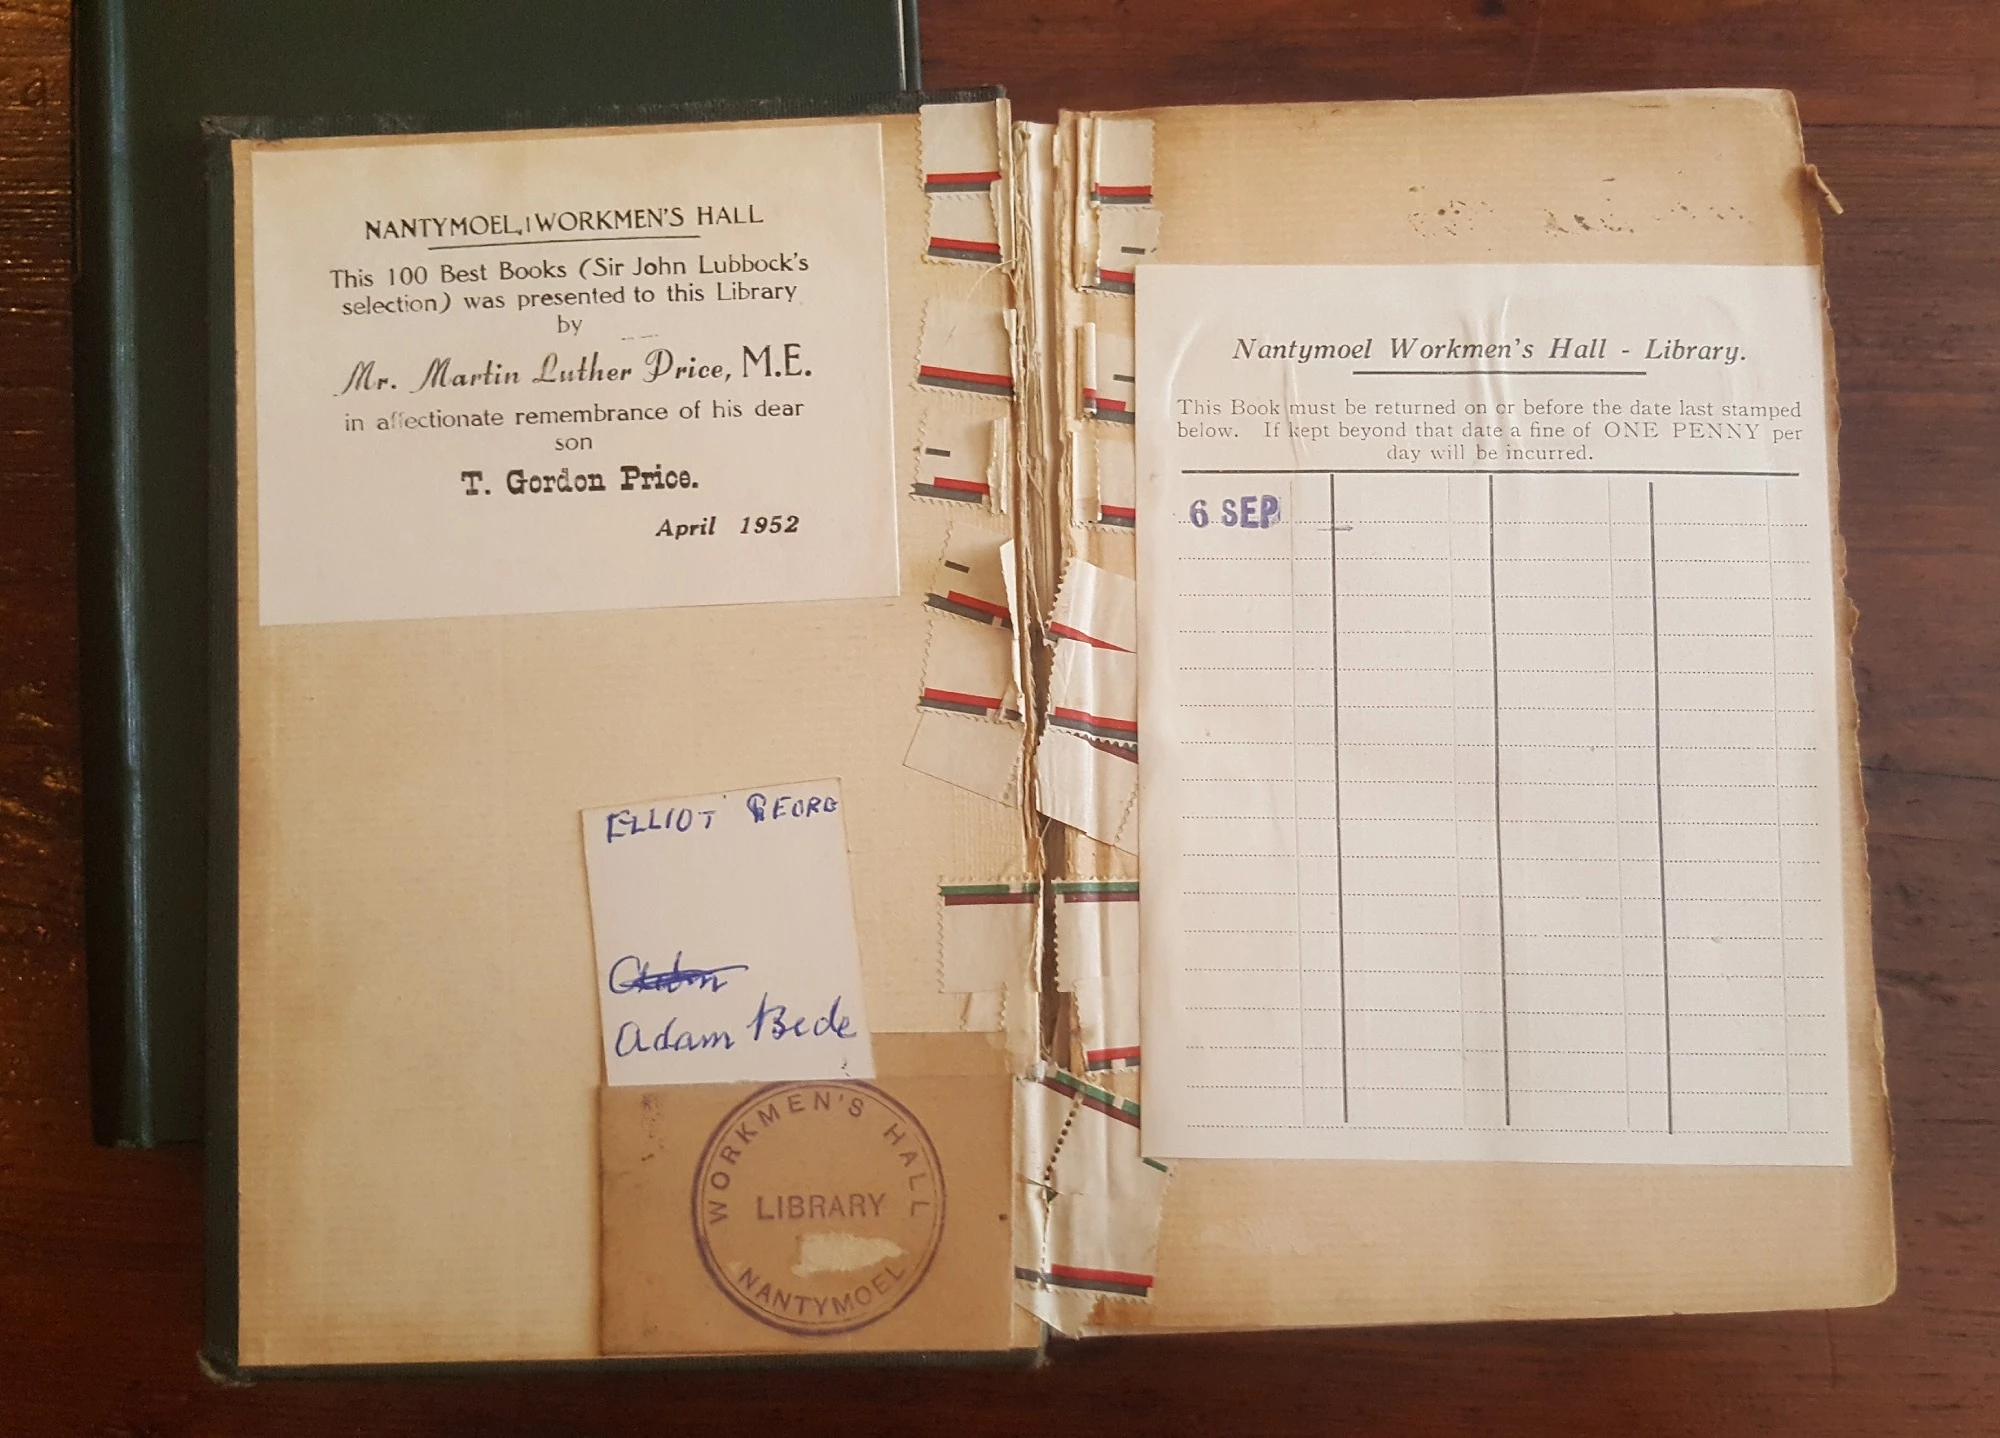 NANTYMOEL, WORKMEN'S HALL
This 100 Best Books (Sir John Lubbock's
selection) was presented to this Library
by
Mr. Martin Luther Price, M.E.
in affectionate remembrance of his dear
son
T. Gordon Price.
April 1952
ELLIOT GEORG
Adam Bede
WORKMEN'S HALL
LIBRARY
NANTYMOEL
Nantymoel Workmen's Hall - Library.
This Book must be returned on or before the date last stamped
below. If kept beyond that date a fine of ONE PENNY per
day will be incurred.
6 SEP